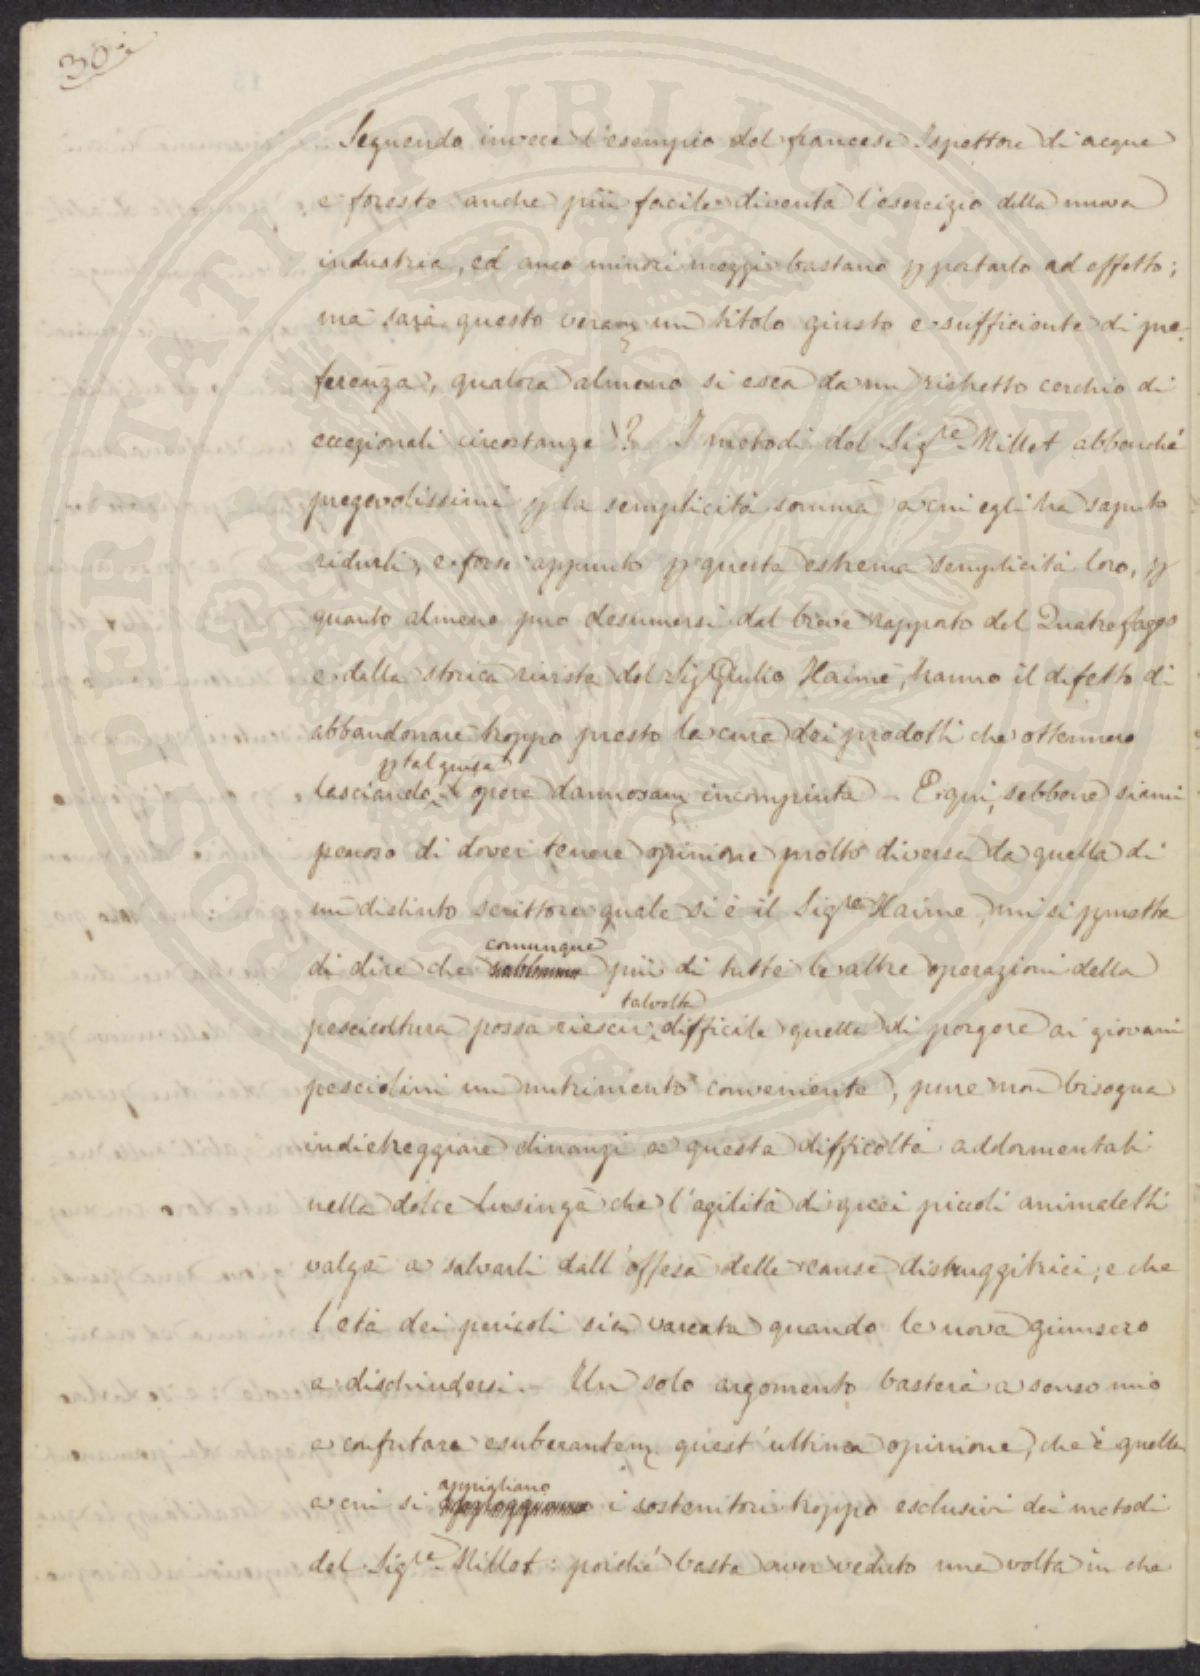 30
Seguendo invece l'esempio del francese Ispettore di acque
e foreste anche più facile diventa l'esercizio della nuova
industria, ed anco minori mezzi bastano p portarlo ad effetto;
ma sarà questo veram un titolo giusto e sufficiente di pre-
ferenza, qualora almeno si esca da un ristretto cerchio di
eccezionali circostanze? I metodi del Sigre Millet abbenché
pregevolissimi p la semplicità somma a cui egli ha saputo
ridurli, e forse appunto p questa estrema semplicità loro, p
quanto almeno puo desumersi dal breve rapporto del Quatrefages
e dalla storica rivista del Sig Giulio Haime, hanno il difetto di
abbandonare troppo presto la cura dei prodotti che ottennero
p tal guisa
lasciando l'opera dannosam incompiuta – E qui, sebbene siami
penoso di dover tenere opinione molto diversa da quella di
un distinto scrittore quale si è il Sigre Haime, mi si pmetta
comunque
di dire che più di tutte le altre operazioni della
talvolta
pescicoltura possa riescir difficile quella di porgere ai giovani
pesciolini un nutrimento conveniente, pure non bisogna
indietreggiare dinanzi a questa difficoltà addormentati
nella dolce lusinga che l'agilità di quei piccoli animaletti
valga a salvarli dall'offesa delle cause distruggitrici, e che
l'età dei pericoli sia varcata quando le uova giunsero
a dischiudersi. – Un solo argomento basterà a senso mio
a confutare esuberantem quest'ultima opinione, che è quella
appigliano
a cui si i sostenitori troppo esclusivi dei metodi
del Sigre Millet: poiché basta aver veduto una volta in che
POSTERITATI PVBLICAE